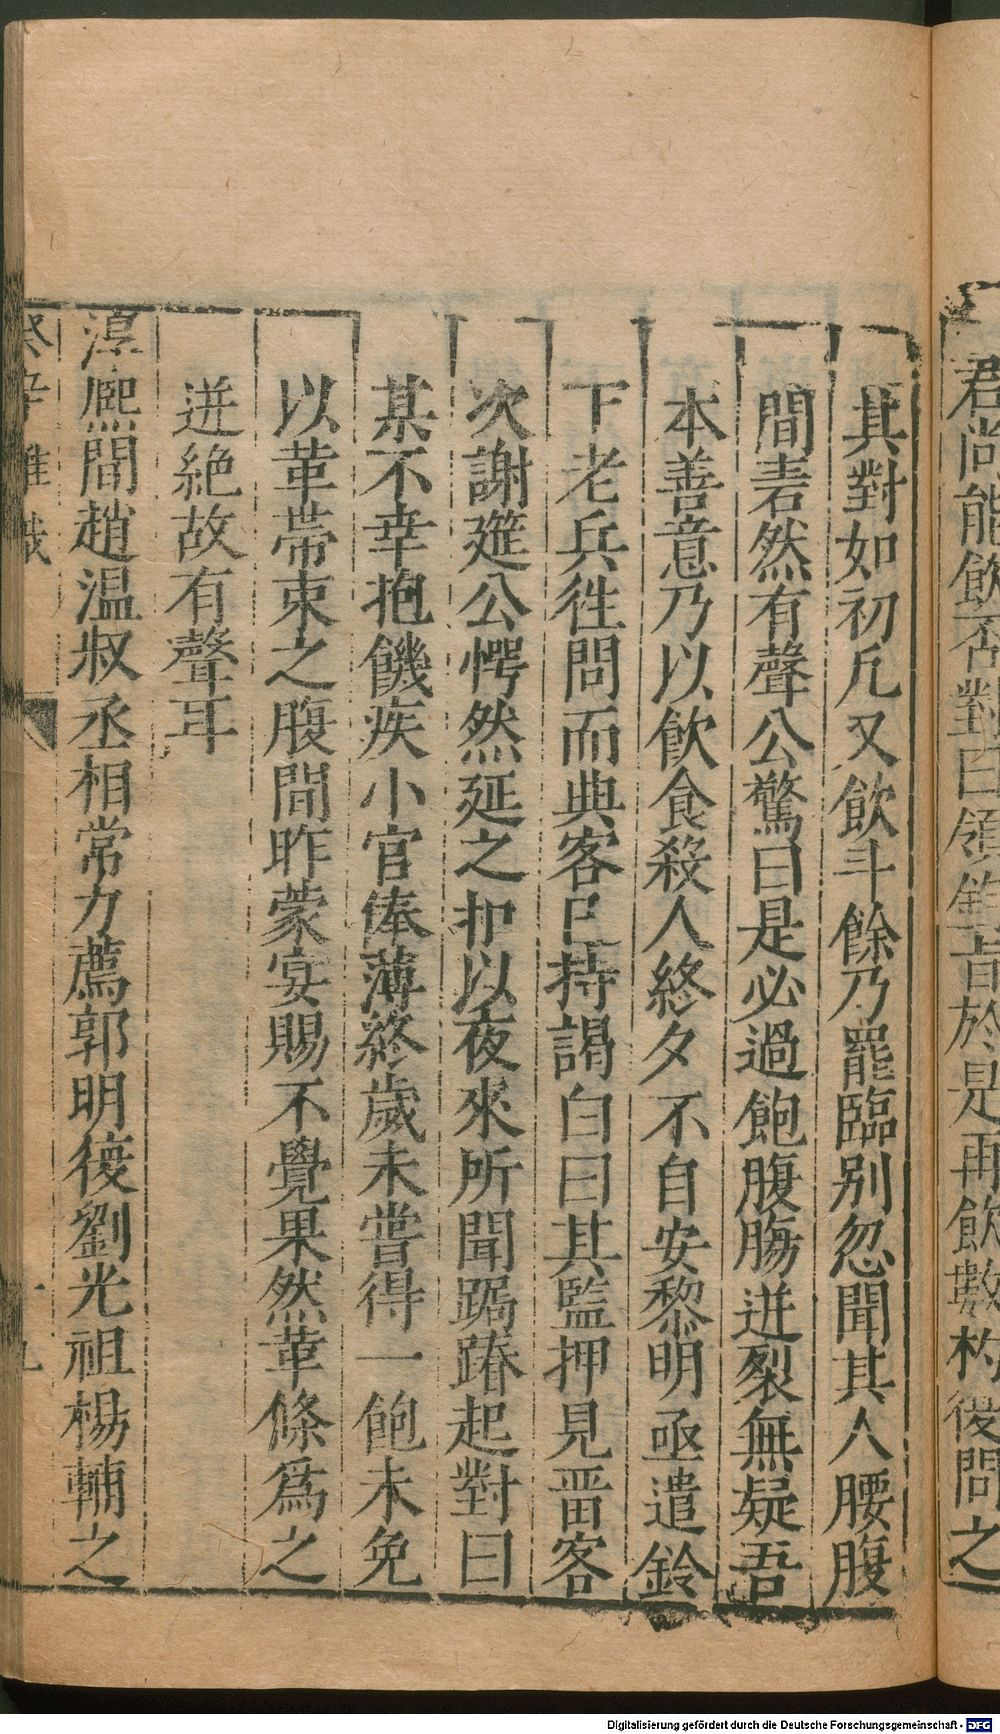 君尚能飲否對曰領鈞旨於是再飲數杓復問之
其對如初凡又飲斗餘乃罷臨別忽聞其人腰腹
間砉然有聲公驚曰是必過飽腹腸迸裂無疑吾
本善意乃以飲食殺人終夕不自安黎明亟遣鈴
下老兵徃問而典客已持謁白曰某監押見畱客
次謝筵公愕然延之扣以夜來所聞跼蹐起對曰
某不幸抱饑疾小官俸薄終歲未嘗得一飽未免
以革帶束之腹間昨蒙宴賜不覺果然革條爲之
迸絕故有聲耳
淳熈間趙温叔丞相常力薦郭明復劉光祖楊輔之
Digitalisierung gefördert durch die Deutsche Forschungsgemeinschaft - DFG